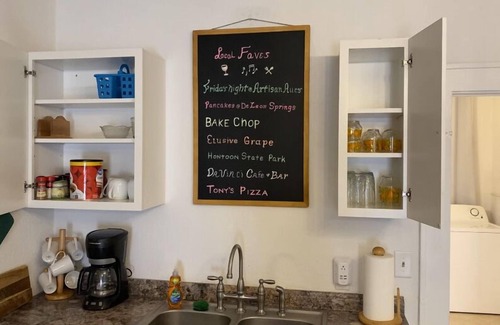 Local Faves
Friday Night @ Artisan Alley
Pancakes @ DeLeon Springs
Bake Chop
Elusive Grape
Hontoon State Park
DaVinci Cafe + Bar
Tony's Pizza